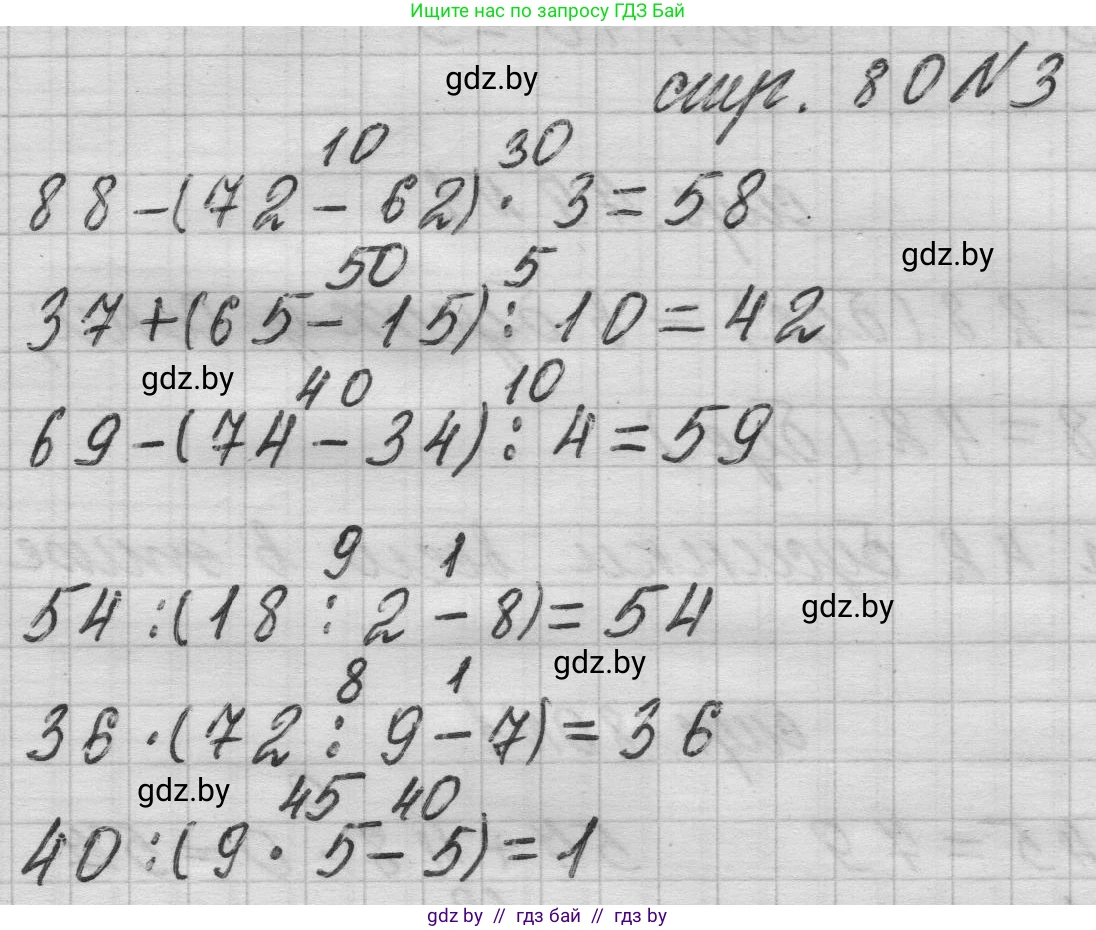 Ищите нас по запросу ГДЗ Бай
gdz.by
стр. 80 №3
10 30
88-(72-62)·3=58
gdz.by
50 5
37+(65-15):10=42
gdz.by
40 10
69-(74-34):4=59
9 1
54:(18:2-8)=54
gdz.by
gdz.by
8 1
36·(72:9-7)=36
gdz.by
45 40
40:(9·5-5)=1
gdz by // гдз бай // гдз by